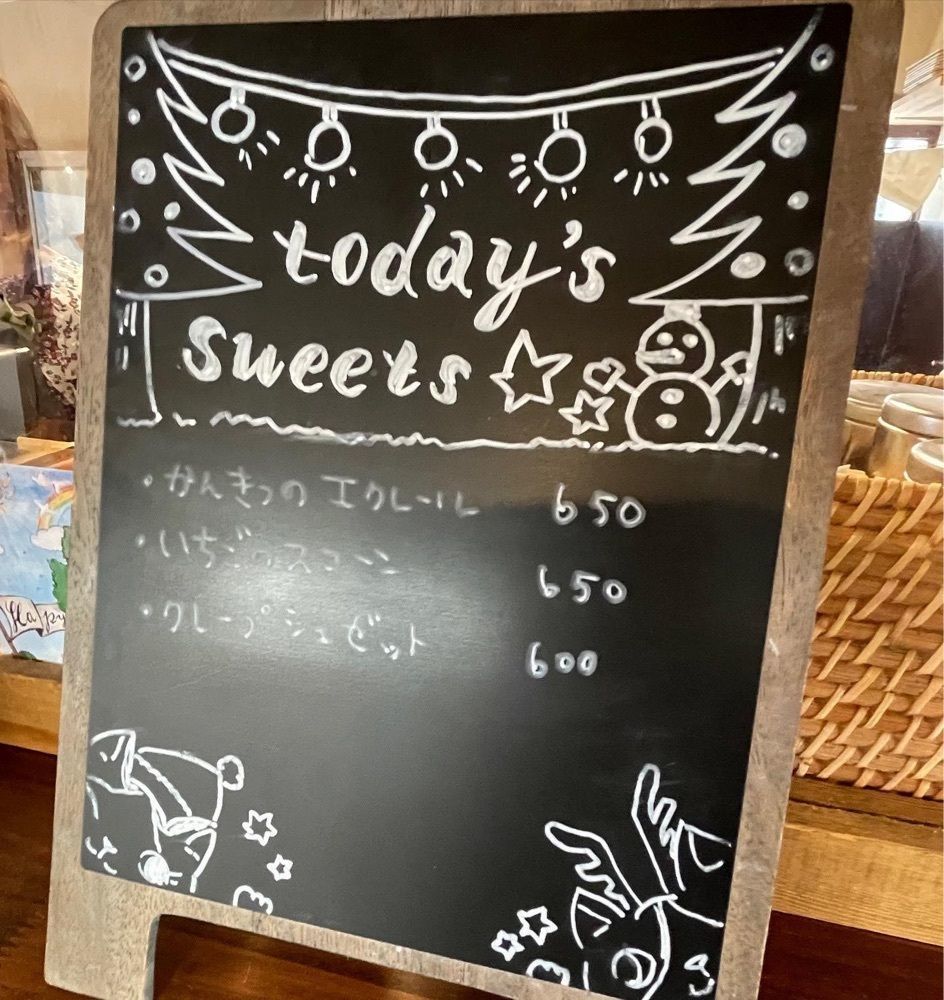 today's
sweets
・かんきつの エクレール 650
・いちごのスコーン 650
・クレープシュゼット 600
Happy